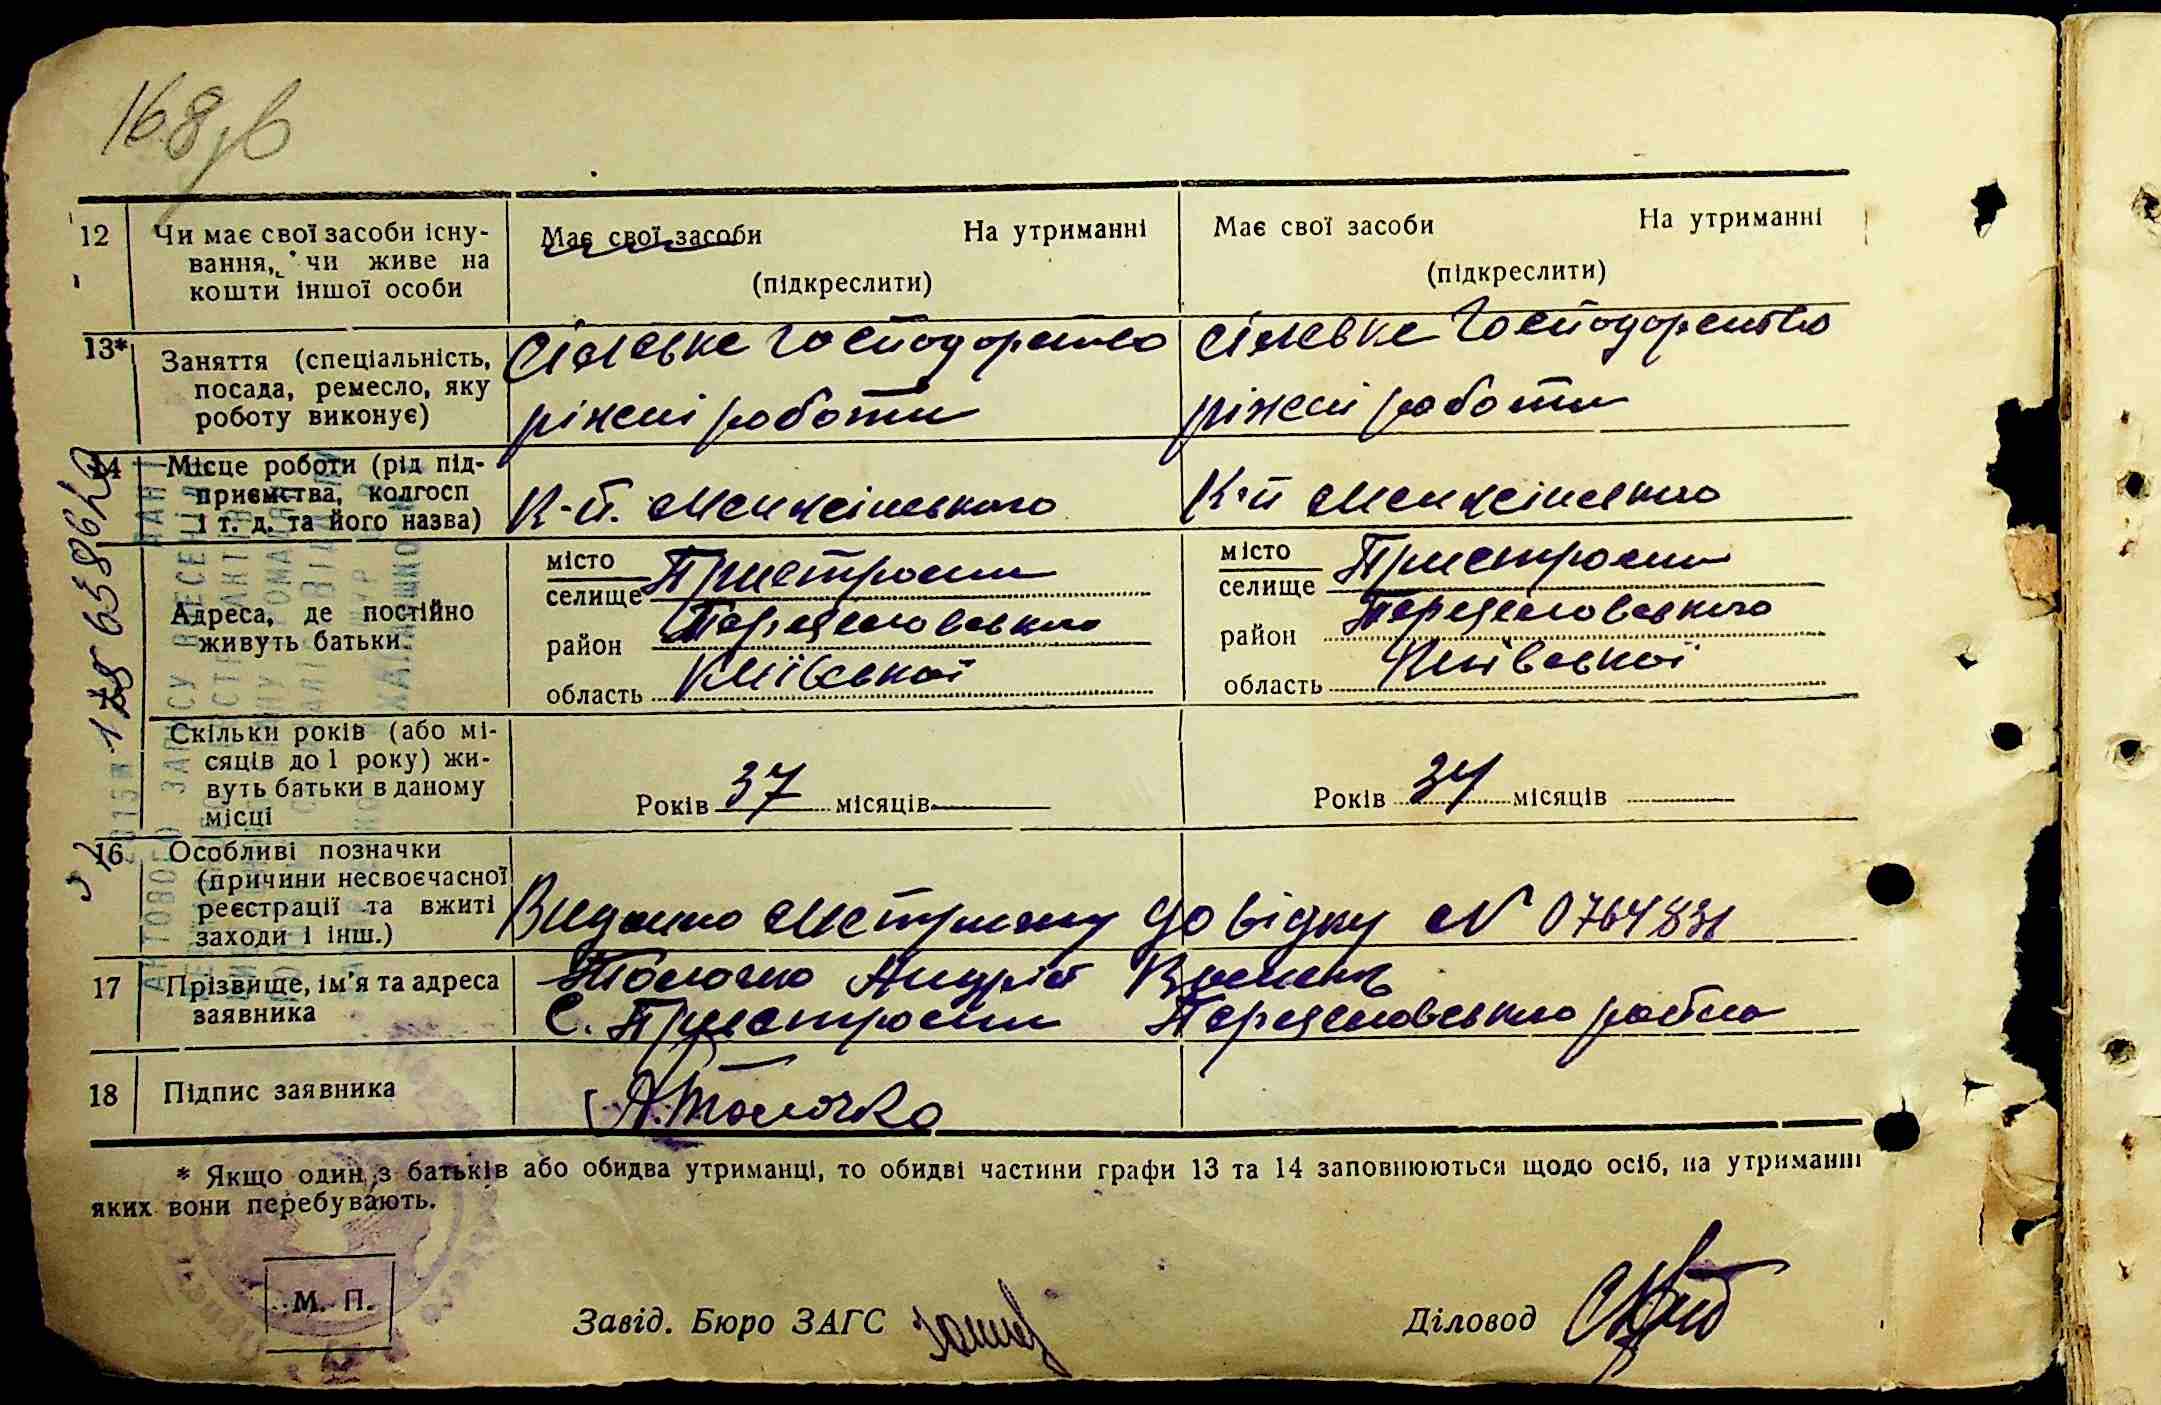 168 зв
12 Чи має свої засоби існу-
вання, чи живе на
кошти іншої особи
Має свої засоби На утриманні
(підкреслити)
Має свої засоби На утриманні
(підкреслити)
13* Заняття (спеціальність,
посада, ремесло, яку
роботу виконує)
Сільське господарство
ріжні роботи
Сільське господарство
ріжні роботи
14 Місце роботи (рід під-
приємства, колгосп
і т. д. та його назва)
К-п. Менжінського
К-п Менжінського
Адреса, де постійно
живуть батьки
місто
селище Пристроми
район Переяславського
область Київської
місто
селище Пристроми
район Переяславського
область Київської
Скільки років (або мі-
сяців до 1 року) жи-
вуть батьки в даному
місці
Років 37 місяців
Років 34 місяців
16 Особливі позначки
(причини несвоєчасної
реєстрації та вжиті
заходи і інш.)
Видано метричну довідку №
17 Прізвище, ім'я та адреса
заявника
Толочко Андрій
С. Пристроми Переяславського району
18 Підпис заявника
А. Толочко
* Якщо один з батьків або обидва утриманці, то обидві частини графи 13 та 14 заповнюються щодо осіб, на утриманні
яких вони перебувають.
М. П.
Завід. Бюро ЗАГС
Діловод